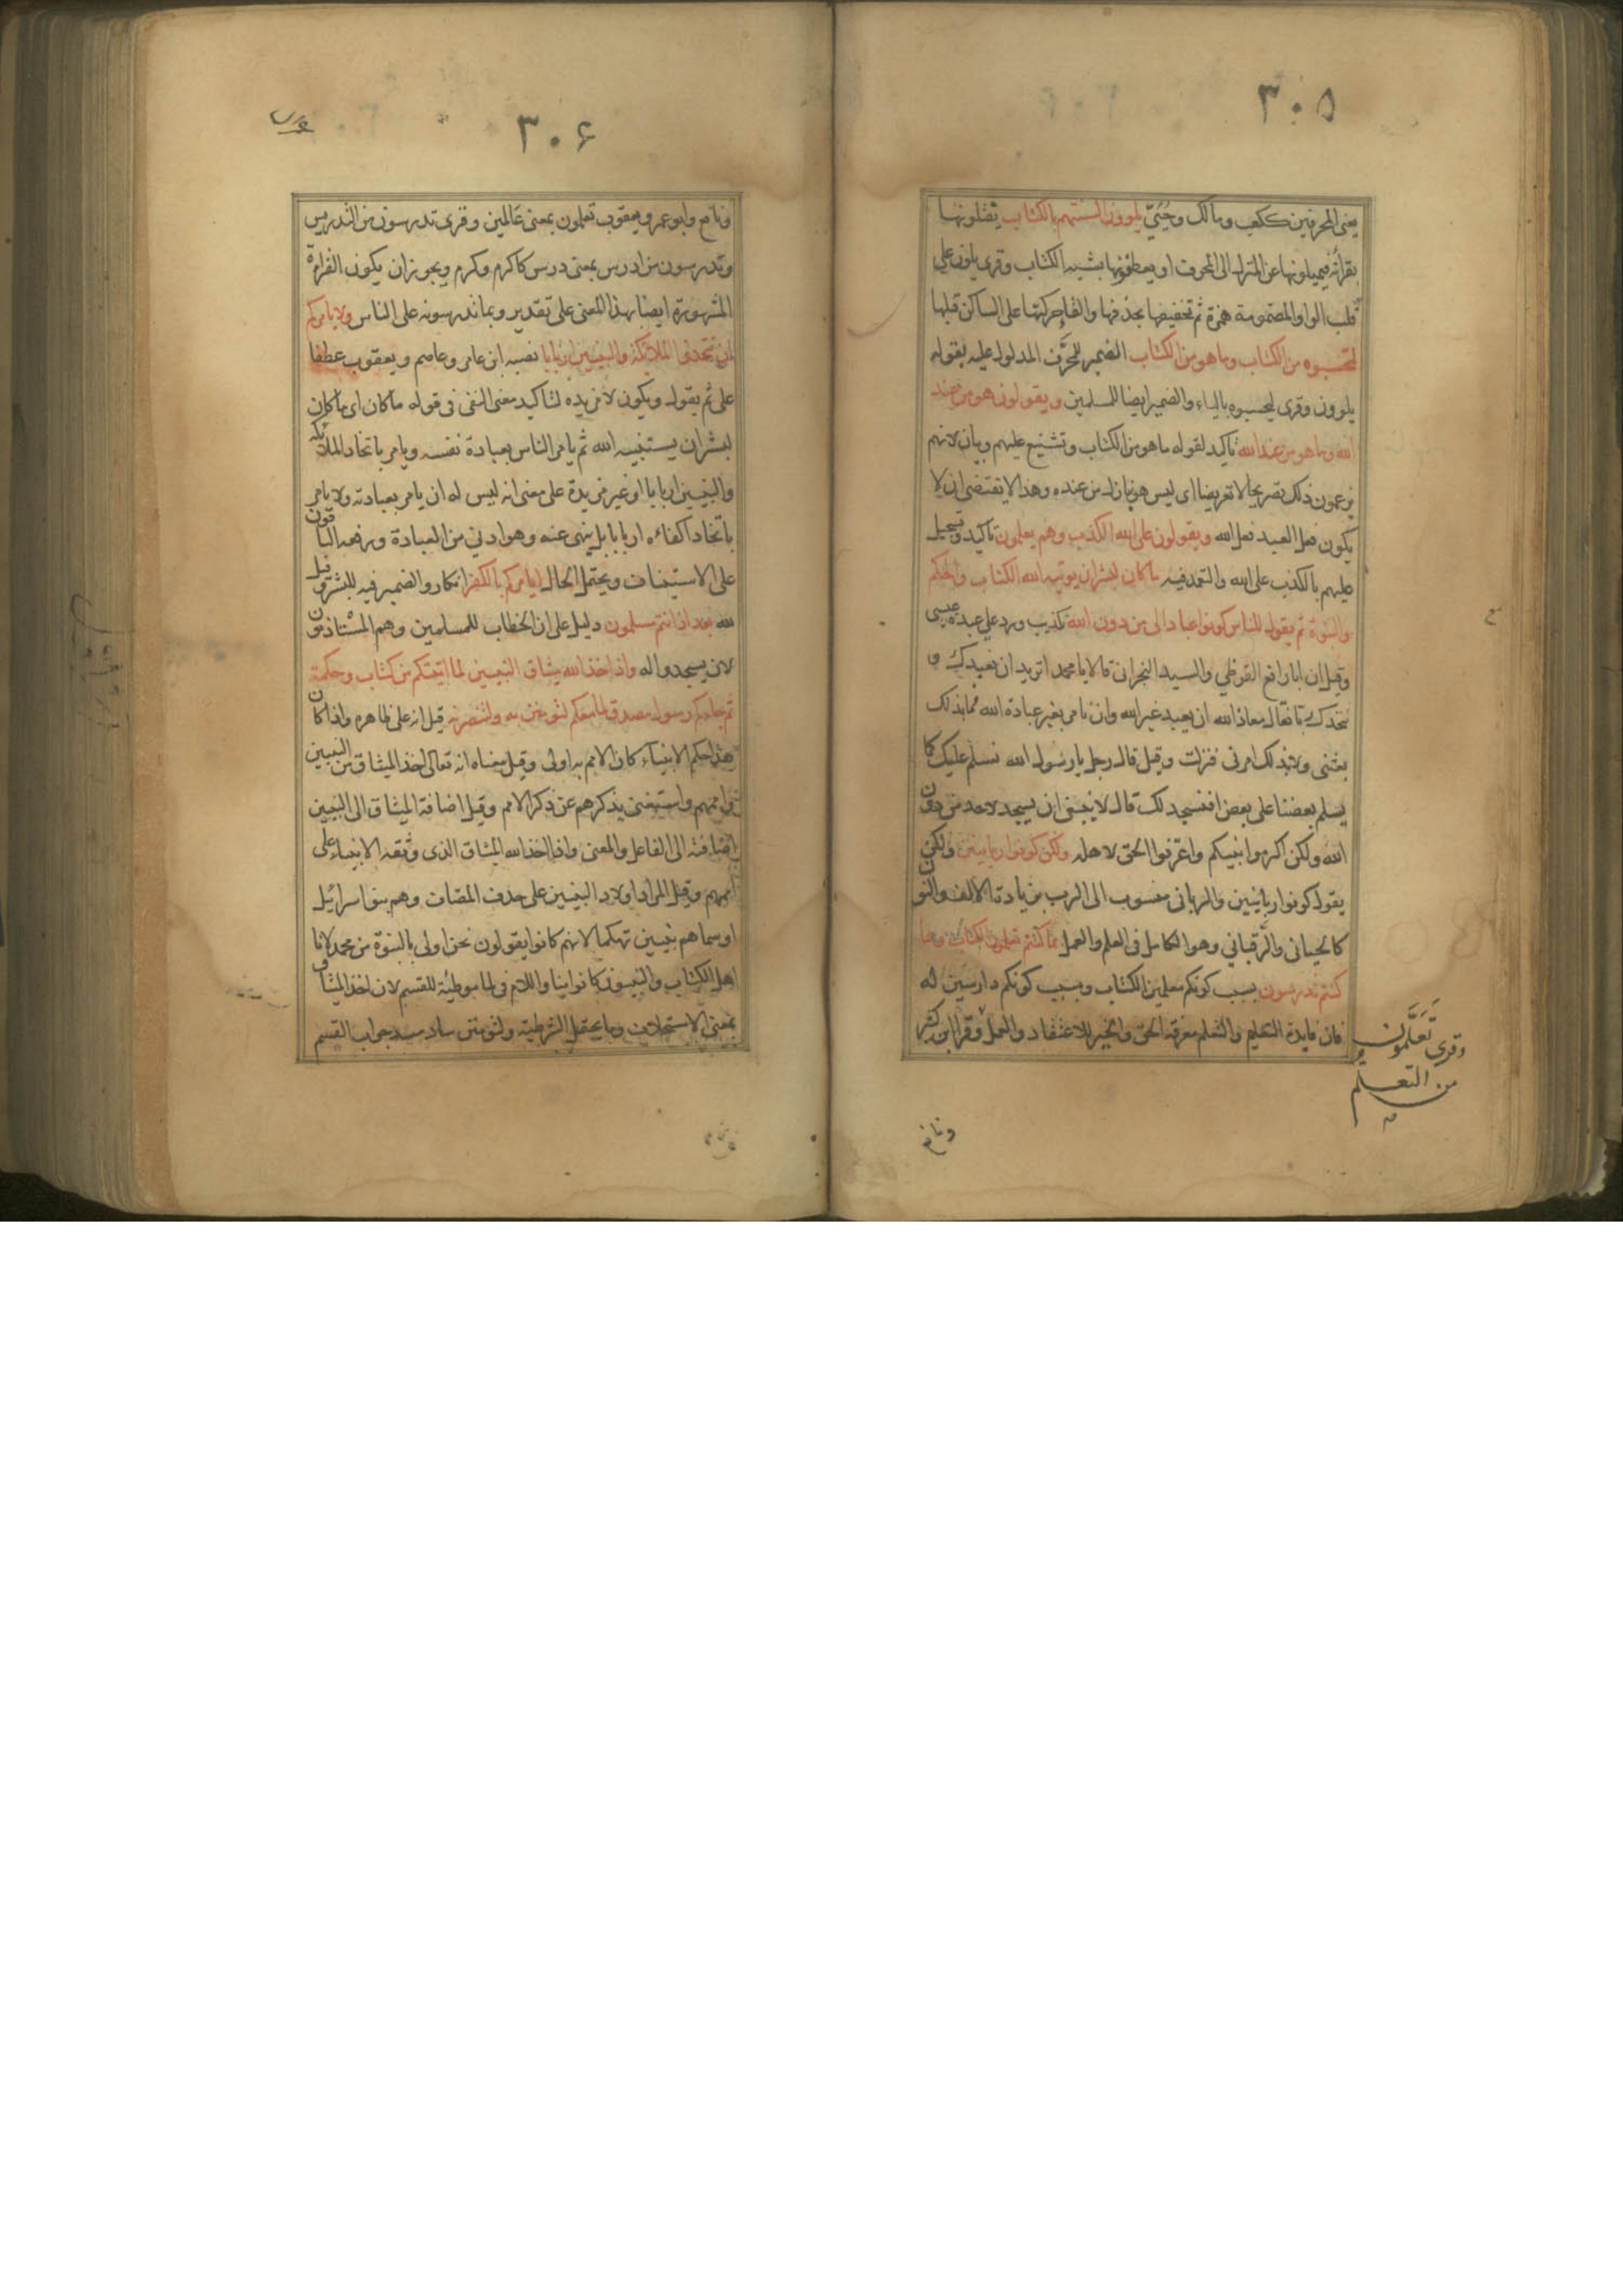 ٣٠٥
يعنى المحرفين ككعب ومالك وحُيَيّ يلوون السنتهم بالكتاب يفتلونها
بقرأته فيميلونها عن المنزل الى المحرف او يعطفونها بشبه الكتاب وقرى يلون على
قلب الواو المضمومة همزة ثم تخفيفها بحذفها والقاء حركتها على الساكن قبلها
لتحسبوه من الكتاب وما هو من الكتاب الضمير للمحرَّف المدلول عليه بقوله
يلوون وقرى ليحسبوه بالياء والضمير ايضا للمسلمين ويقولون هو من عند
الله وما هو من عند الله تاكيد لقوله ما هو من الكتاب وتشنيع عليهم وبيان لانهم
يزعمون ذلك تصريحا لا تعريضا اى ليس هو نازل من عنده وهذا لا يقتضى ان لا
يكون فعل العبد فعل الله ويقولون على الله الكذب وهم يعلمون تاكيد وتسجيل
عليهم بالكذب على الله والتعمد فيه ما كان لبشر ان يوتيه الله الكتاب والحكم
والنبوة ثم يقول للناس كونوا عبادا لى من دون الله تكذيب ورد على عبدة عيسى
وقيل ان ابا رافع القرظي والسيد النجرانى قالا يا محمد اتريد ان نعبدك و
نتخذك ربا فقال معاذ الله ان يعبد غير الله وان نامر بغير عبادة الله فما بذلك
بعثنى ولا بذلك امرنى فنزلت وقيل قال رجل يا رسول الله نسلم عليك كما
يسلم بعضنا على بعض افنسجد لك قال لا ينبغى ان يسجد لاحد من دون
الله ولكن اكرموا نبيكم واعرفوا الحق لاهله ولكن كونوا ربانيين ولكن
يقول كونوا ربانيين والربانى منسوب الى الرب بزيادة الالف والنون
كاللحيانى والرَّقبانى وهو الكامل فى العلم والعمل بما كنتم تعلمون الكتاب وبما
كنتم تدرسون بسبب كونكم معلمين الكتاب وبسبب كونكم دارسين له
فان فايدة التعليم والتعلم معرفة الحق والخير للاعتقاد والعمل وقرا ابن كثير
وقرى تَعَلَّمون
من التعلم
ونافع
٣٠٦
ونافع وابو عمرو ويعقوب تعلمون بمعنى عَالمين وقرى تدرسون من التدريس
وتدرسون من ادرس بمعنى درس كاكرم وكرم ويجوز ان يكون القراءة
المشهورة ايضا بهذا المعنى على تقدير وبما تدرسونه على الناس ولا يامركم
ان تتخذوا الملائكة والنبيين اربابا نصبه ابن عامر وعاصم ويعقوب عطفا
على ثم يقول ويكون لا مزيده لتاكيد معنى النفى فى قوله ما كان اى ما كان
لبشر ان يستنبيه الله ثم يامر الناس بعبادة نفسه ويامر باتخاد الملائكة
والنبيين اربابا او غير مزيدة على معنى انه ليس له ان يامر بعبادته ولا يامر
باتخاد اكفائه اربابا بل ينهى عنه وهو ادنى من العبادة ورفعه الباقون
على الاستيناف ويحتمل الحال ايامركم بالكفر انكار والضمير فيه للبشر وقيل
لله بعد اذ انتم مسلمون دليل على ان الخطاب للمسلمين وهم المستاذنون
لان يسجدوا له واذ اخذ الله ميثاق النبيين لما اتيتكم من كتاب وحكمة
ثم جاءكم رسول مصدق لما معكم لتؤمنن به ولتنصرنه قيل انه على ظاهره واذا كان
هذا حكم الانبياء كان الامم به اولى وقيل معناه انه تعالى اخذ الميثاق من النبيين
واممهم واستغنى بذكرهم عن ذكر الامم وقيل اضافة الميثاق الى النبيين
اضافته الى الفاعل والمعنى واذ اخذ الله الميثاق الذى وثقه الانبياء على
اممهم وقيل المراد اولاد النبيين على حذف المضاف وهم بنو اسرائيل
او سماهم نبيين تهكما لانهم كانوا يقولون نحن اولى بالنبوة من محمد لانا
اهل الكتاب والنبيون كانوا منا واللام فى لما موطئة للقسم لان اخذ الميثاق
بمعنى الاستحلاف وما يحتمل الشرطية ولتؤمنن ساد مسد جواب القسم